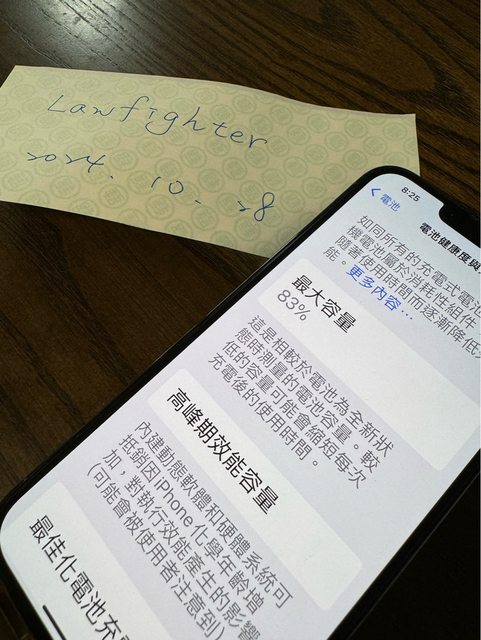 Lawfighter
2024. 10. 28
8:25
電池
電池健康度與
如同所有的充電式電池
機電池屬於消耗性組件
隨著使用時間而逐漸降低
能。更多內容...
最大容量
83%
這是相較於電池為全新狀
態時測量的電池容量。較
低的容量可能會縮短每次
充電後的使用時間。
高峰期效能容量
內建動態軟體和硬體系統可
抵銷因 iPhone 化學年齡增
加，對執行效能產生的影響
(可能會被使用者注意到)
最佳化電池充